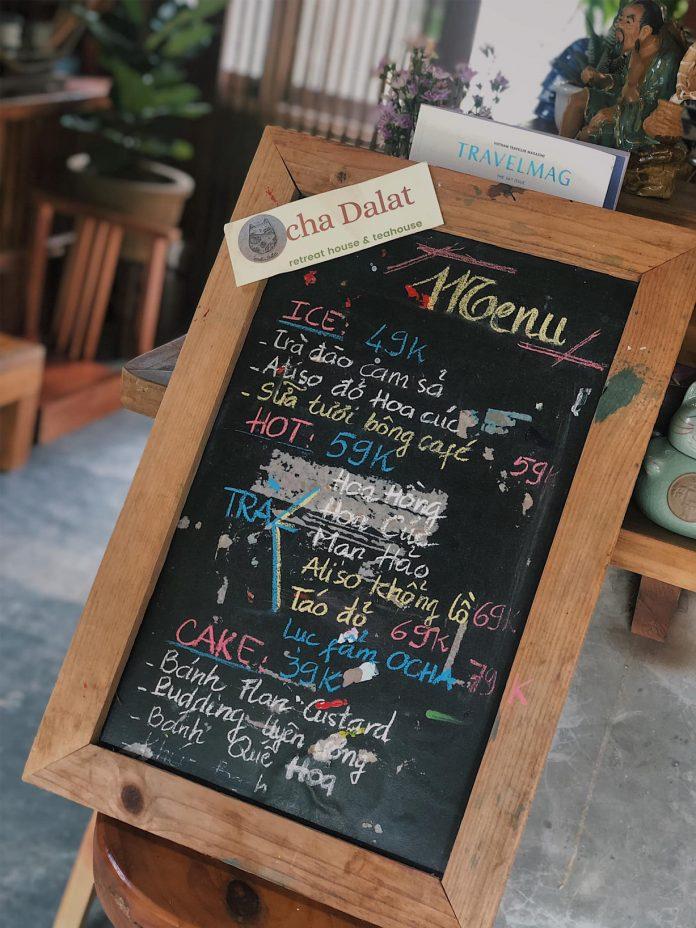 VIETNAM TRAVELLER MAGAZINE
TRAVELMAG
cha Dalat
retreat house & teahouse
Menu
ICE: 49K
- Trà đào cam sả
- Atiso đỏ Hoa cúc
- Sữa tươi bông café 59K
HOT: 59K
TRÀ
Hoa Hồng
Hoa Cúc
Man Hảo
Atiso khổng lồ 69K
Táo đỏ 69K
Lục ẩm OCHA 79K
CAKE: 39K
- Bánh Flan Custard
- Pudding
- Bánh Quế Hoa